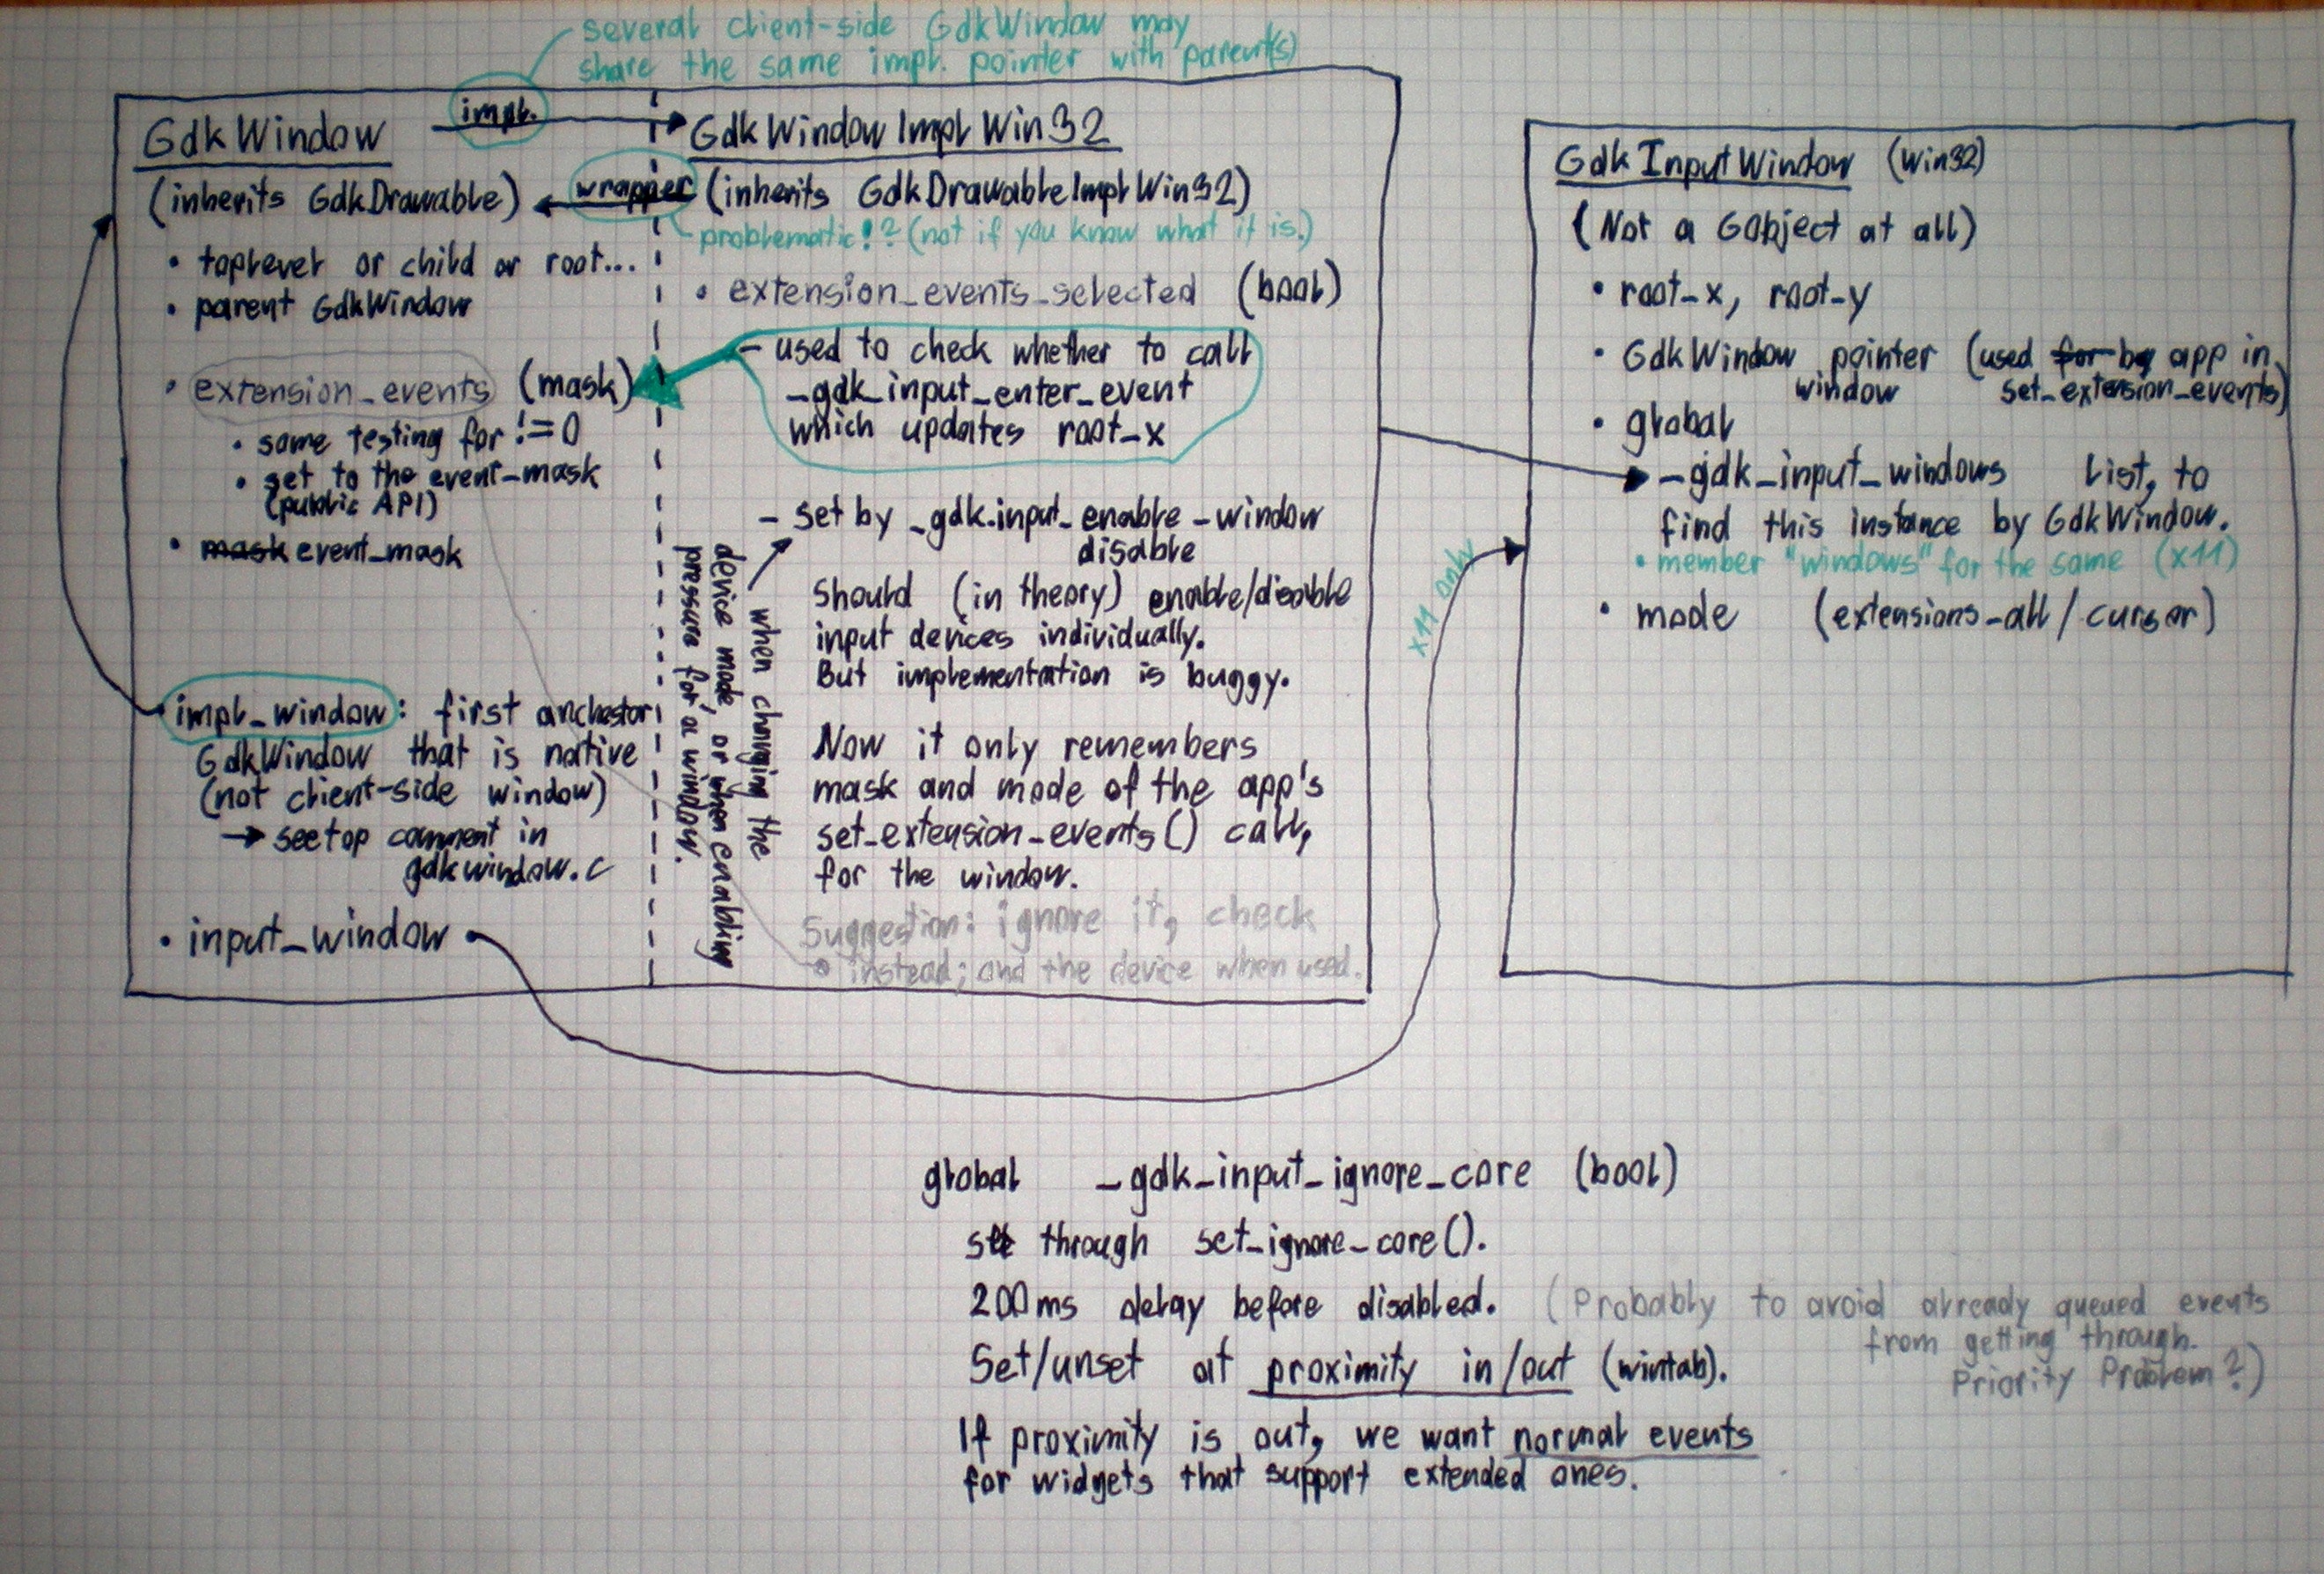 several client-side GdkWindow may
share the same impl. pointer with parent(s)
GdkWindow
impl.
(inherits GdkDrawable)
wrapper
• toplevel or child or root...
• parent GdkWindow
• extension_events (mask)
• some testing for != 0
• set to the event_mask
(public API)
• mask event_mask
impl_window: first anchestor
GdkWindow that is native
(not client-side window)
→ see top comment in
gdkwindow.c
• input_window
GdkWindowImplWin32
(inherits GdkDrawableImplWin32)
problematic!? (not if you know what it is.)
• extension_events_selected (bool)
- used to check whether to call
_gdk_input_enter_event
which updates root_x
- set by _gdk_input_enable_window
disable
when changing the
device mode, or when enabling
pressure for a window.
Should (in theory) enable/disable
input devices individually.
But implementation is buggy.
Now it only remembers
mask and mode of the app's
set_extension_events() call,
for the window.
Suggestion: ignore it, check
• instead; and the device when used.
x11 only
GdkInputWindow (Win32)
(Not a GObject at all)
• root_x, root_y
• GdkWindow pointer (used for by app in
window set_extension_events)
• global
_gdk_input_windows list, to
find this instance by GdkWindow.
• member "windows" for the same (x11)
• mode (extensions_all / cursor)
global _gdk_input_ignore_core (bool)
set through set_ignore_core().
200ms delay before disabled. (Probably to avoid already queued events
from getting through.
Priority Problem?)
Set/unset at proximity in/out (wintab).
If proximity is out, we want normal events
for widgets that support extended ones.